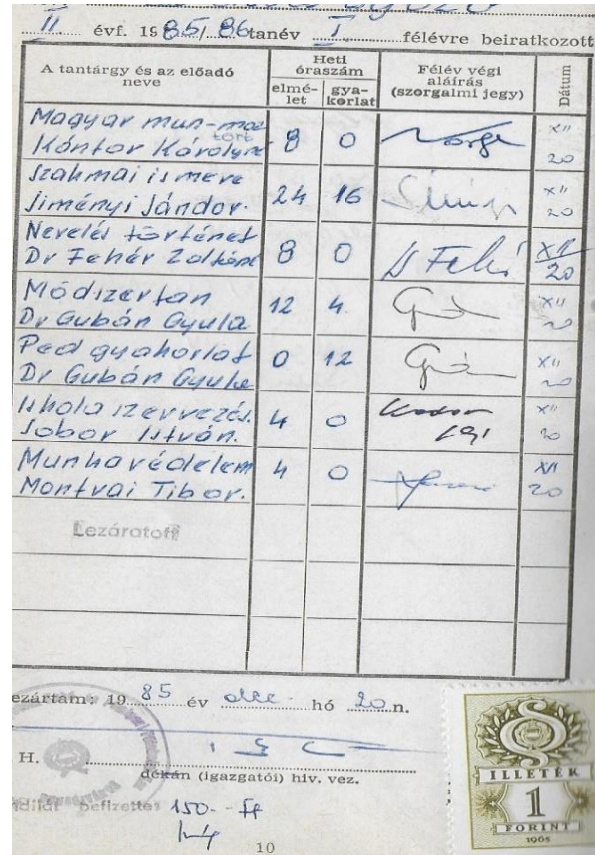 II. évf. 1985/86 tanév I. félévre beiratkozott
A tantárgy és az előadó neve
Heti óraszám
elmé-let
gya-korlat
Félév végi aláírás (szorgalmi jegy)
Dátum
Magyar mun-moz tört
Kántor Károlyné 8 0 XII 20
Szakmai ismere
Siményi Sándor. 24 16 XII 20
Nevelés történet
Dr Fehér Zoltánné 8 0 XII 20
Módszertan
Dr Gubán Gyula 12 4 XII 20
Ped gyakorlat
Dr Gubán Gyula 0 12 XII 20
Iskola szervezés.
Sobor István. 4 0 XII 20
Munkavédelem
Montvai Tibor. 4 0 XII 20
Lezáratott
ezártam: 1985 év dec. hó 20 n.
H.
dékán (igazgatói) hiv. vez.
befizettes 150.- Ft
10
ILLETÉK
1
FORINT
1965